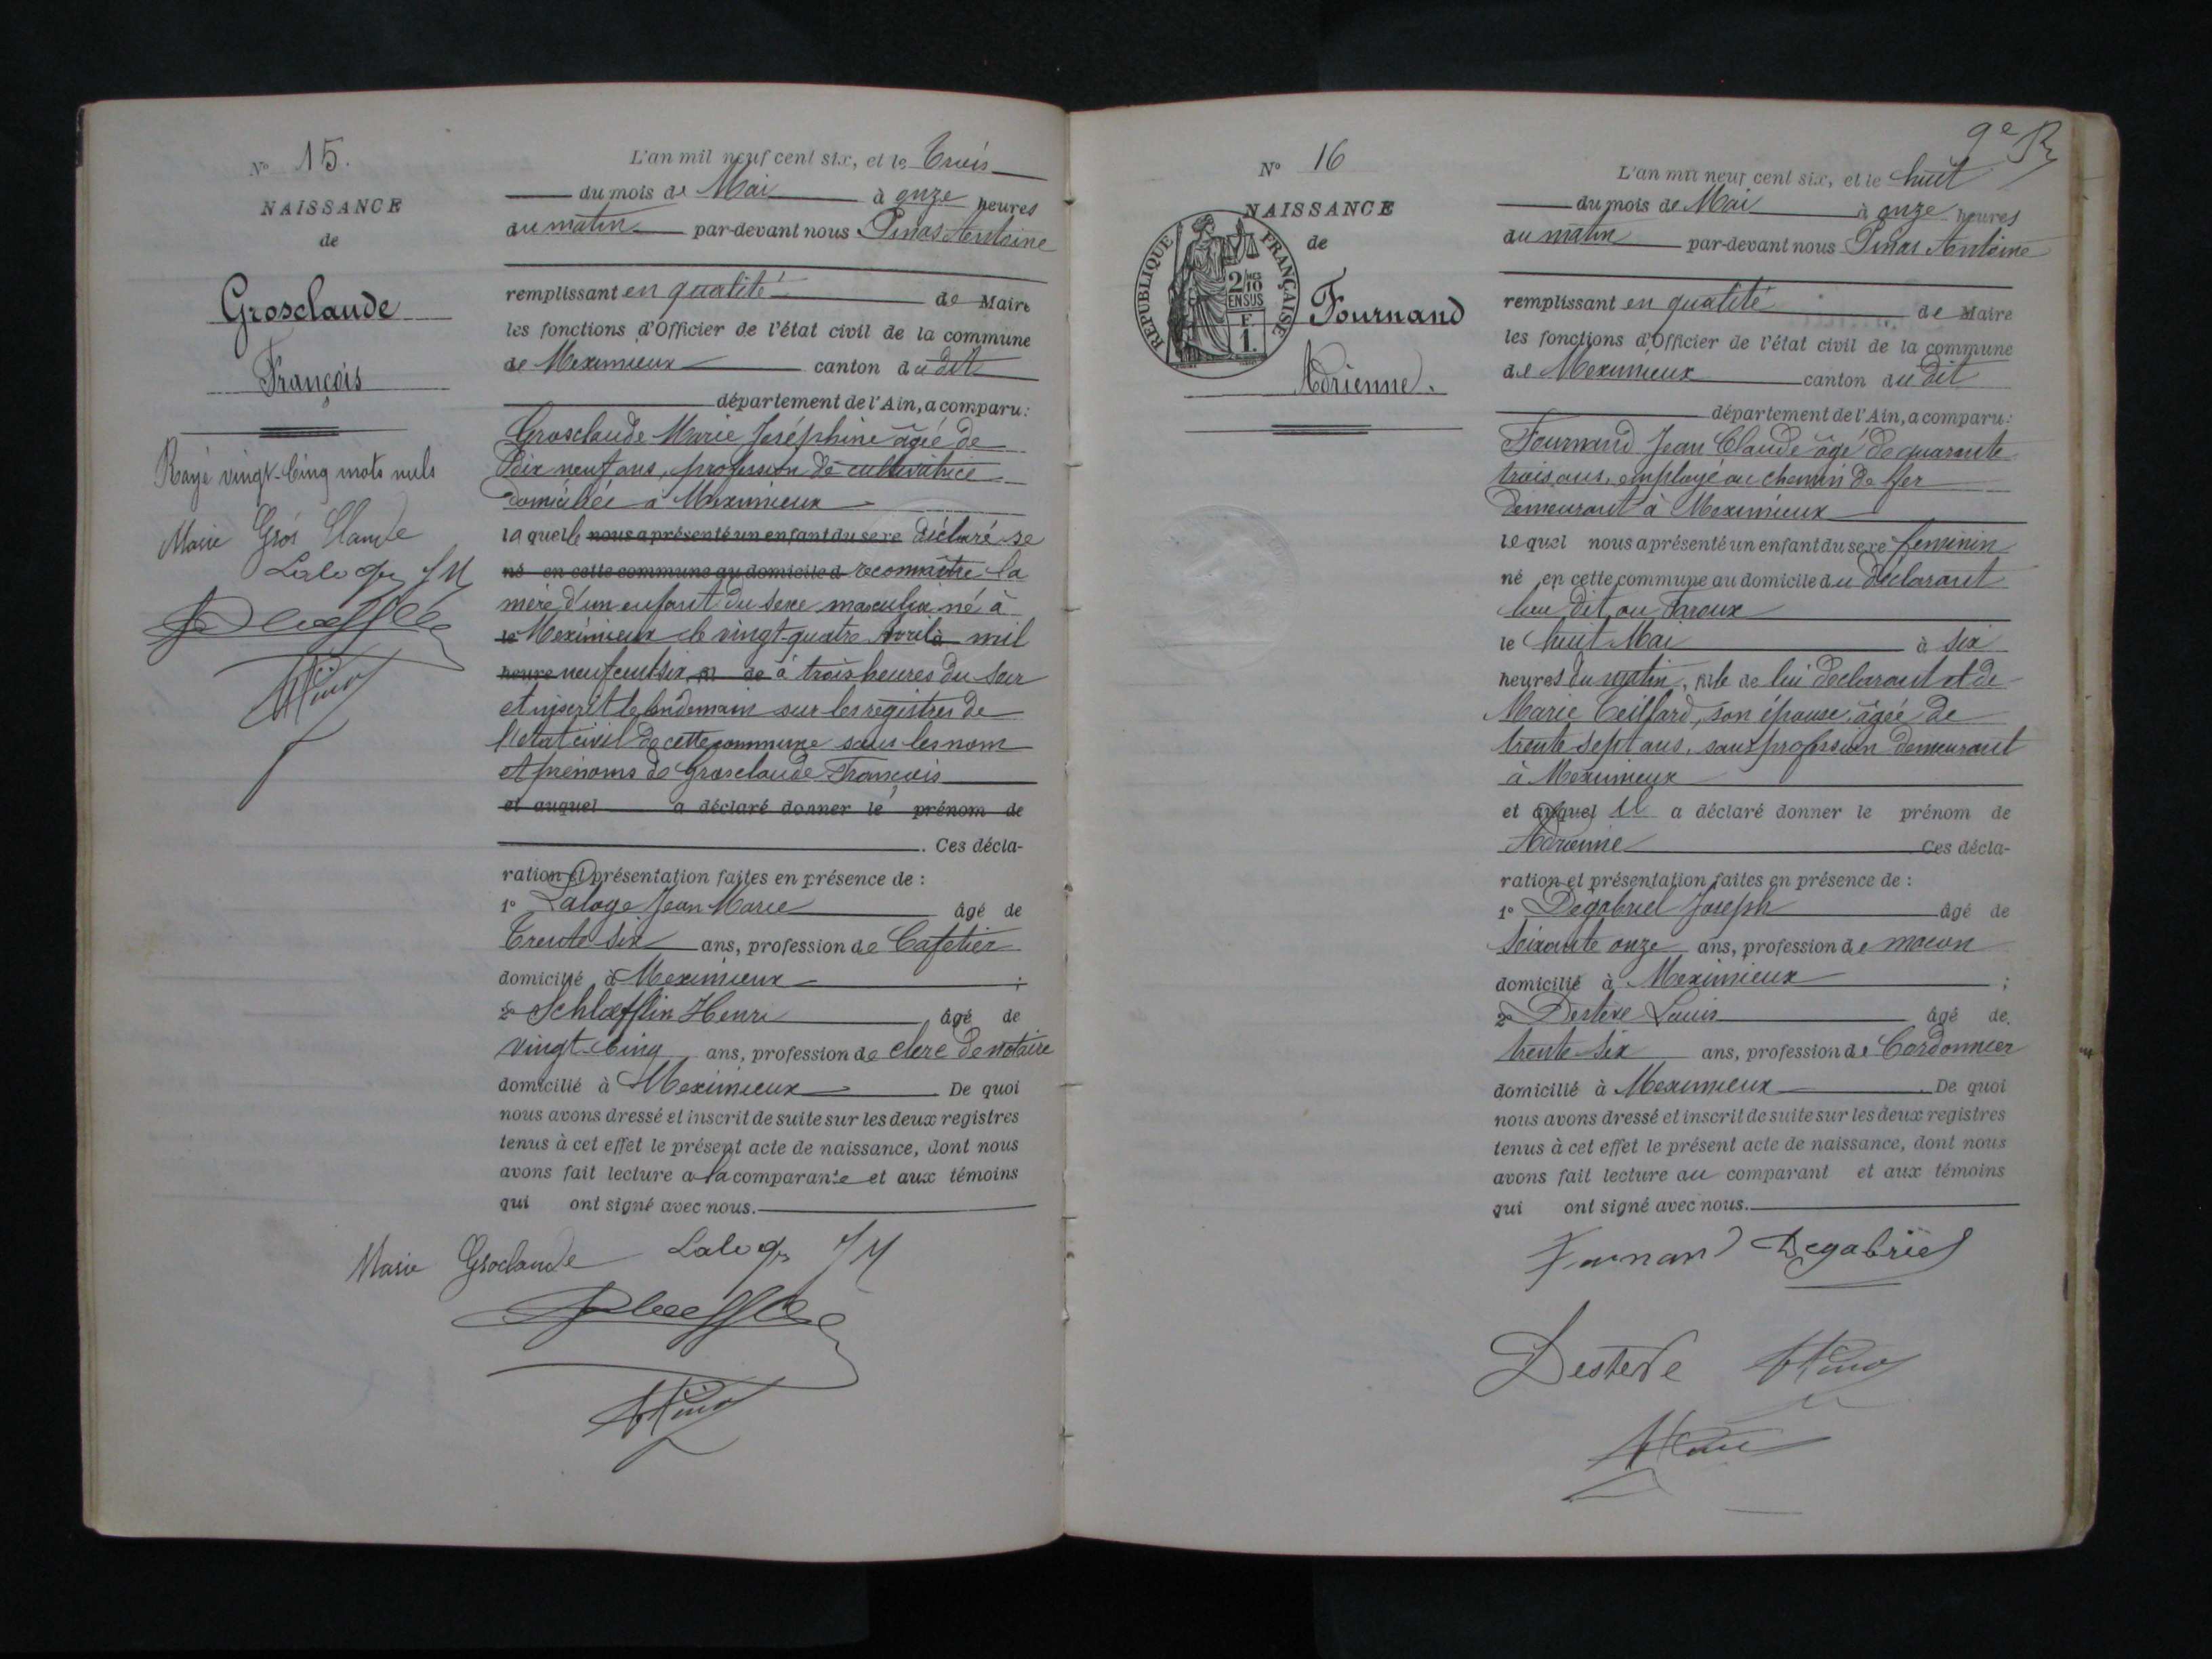 N° 15.
NAISSANCE
de
Grosclaude
François
Rayé vingt-cinq mots nuls
Marie Gros Claude
Laloge JM
L'an mil neuf cent six, et le Trois
du mois de Mai à onze heures
du matin par-devant nous Pinas Antoine
remplissant en qualité de Maire
les fonctions d'Officier de l'état civil de la commune
de Meximieux canton du dit
département de l'Ain, a comparu:
Grosclaude Marie Joséphine âgée de
Dix neuf ans, profession de cultivatrice
domiciliée à Meximieux
laquelle nous a présenté un enfant du sexe déclaré se
né en cette commune au domicile d reconnaître la
mère d'un enfant du sexe masculin né à
le Meximieux le vingt-quatre Avril à mil
heure neuf cent six, de à trois heures du soir
et inscrit le lendemain sur les registres de
l'état civil de cette commune sous les nom
et prénoms de Grosclaude François
et auquel a déclaré donner le prénom de
. Ces décla-
ration et présentation faites en présence de :
1° Laloge Jean Marie âgé de
Trente six ans, profession de Cafetier
domicilié à Meximieux ;
2° Schlæfflin Henri âgé de
vingt-cinq ans, profession de clerc de notaire
domicilié à Meximieux . De quoi
nous avons dressé et inscrit de suite sur les deux registres
tenus à cet effet le présent acte de naissance, dont nous
avons fait lecture a la comparante et aux témoins
qui ont signé avec nous.
Marie Groclaude Laloge JM
9e
N° 16
NAISSANCE
de
REPUBLIQUE FRANÇAISE
2/10
EN SUS
F
1.
Fournand
Adrienne.
L'an mil neuf cent six, et le huit
du mois de Mai à onze heures
du matin par-devant nous Pinas Antoine
remplissant en qualité de Maire
les fonctions d'Officier de l'état civil de la commune
de Meximieux canton du dit
département de l'Ain, a comparu:
Fournand Jean Claude âgé de quarante
trois ans, employé au chemin de fer
demeurant à Meximieux
lequel nous a présenté un enfant du sexe feminin
né en cette commune au domicile du déclarant
lieu dit au
le huit Mai à six
heures du matin, fille de lui déclarant et de
Marie Teillard, son épouse, âgée de
trente sept ans, sans profession demeurant
à Meximieux
et auquel il a déclaré donner le prénom de
Adrienne Ces décla-
ration et présentation faites en présence de :
1° Degabriel Joseph âgé de
soixante onze ans, profession de macon
domicilié à Meximieux ;
2° Desteve Louis âgé de
trente six ans, profession de Cordonnier
domicilié à Meximieux . De quoi
nous avons dressé et inscrit de suite sur les deux registres
tenus à cet effet le présent acte de naissance, dont nous
avons fait lecture au comparant et aux témoins
qui ont signé avec nous.
Fournand Degabriel
Desteve